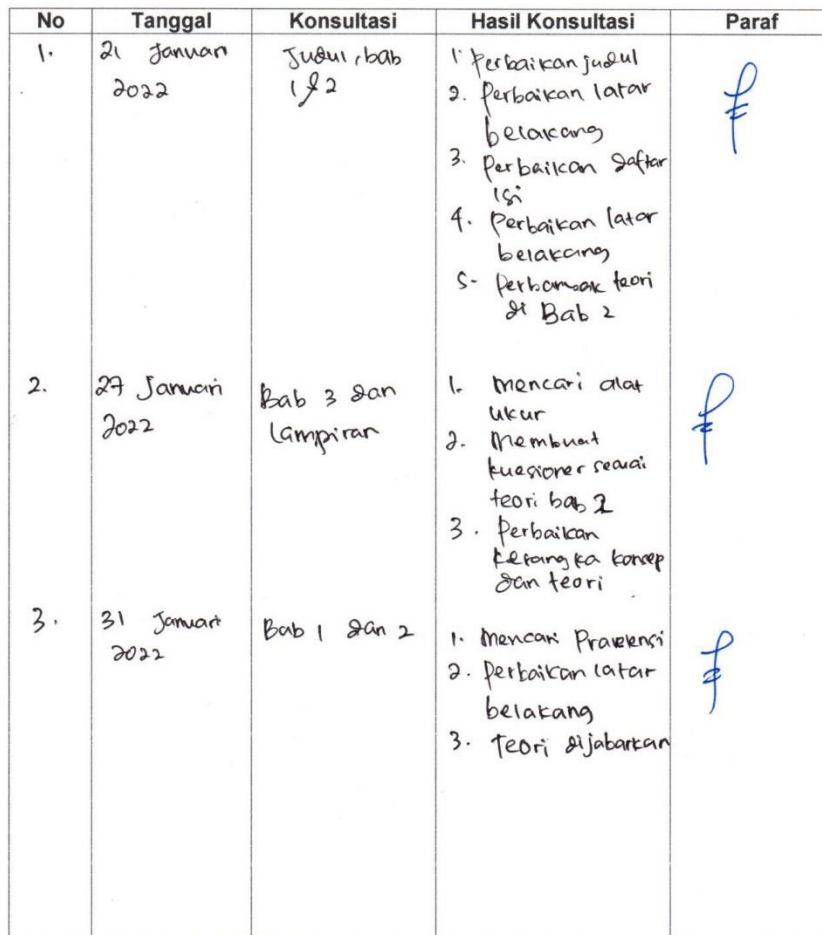 No Tanggal Konsultasi Hasil Konsultasi Paraf
1. 21 Januari Judul, bab 1. Perbaikan judul
2022 1 & 2 2. Perbaikan latar
belakang
3. Perbaikan daftar
isi
4. Perbaikan latar
belakang
5- Perbanyak teori
di Bab 2
2. 27 Januari Bab 3 dan 1. Mencari alat
2022 Lampiran ukur
2. Membuat
kuesioner sesuai
teori bab 2
3. Perbaikan
kerangka konsep
dan teori
3. 31 Januari Bab 1 dan 2 1. Mencari
2022 2. Perbaikan latar
belakang
3. Teori dijabarkan